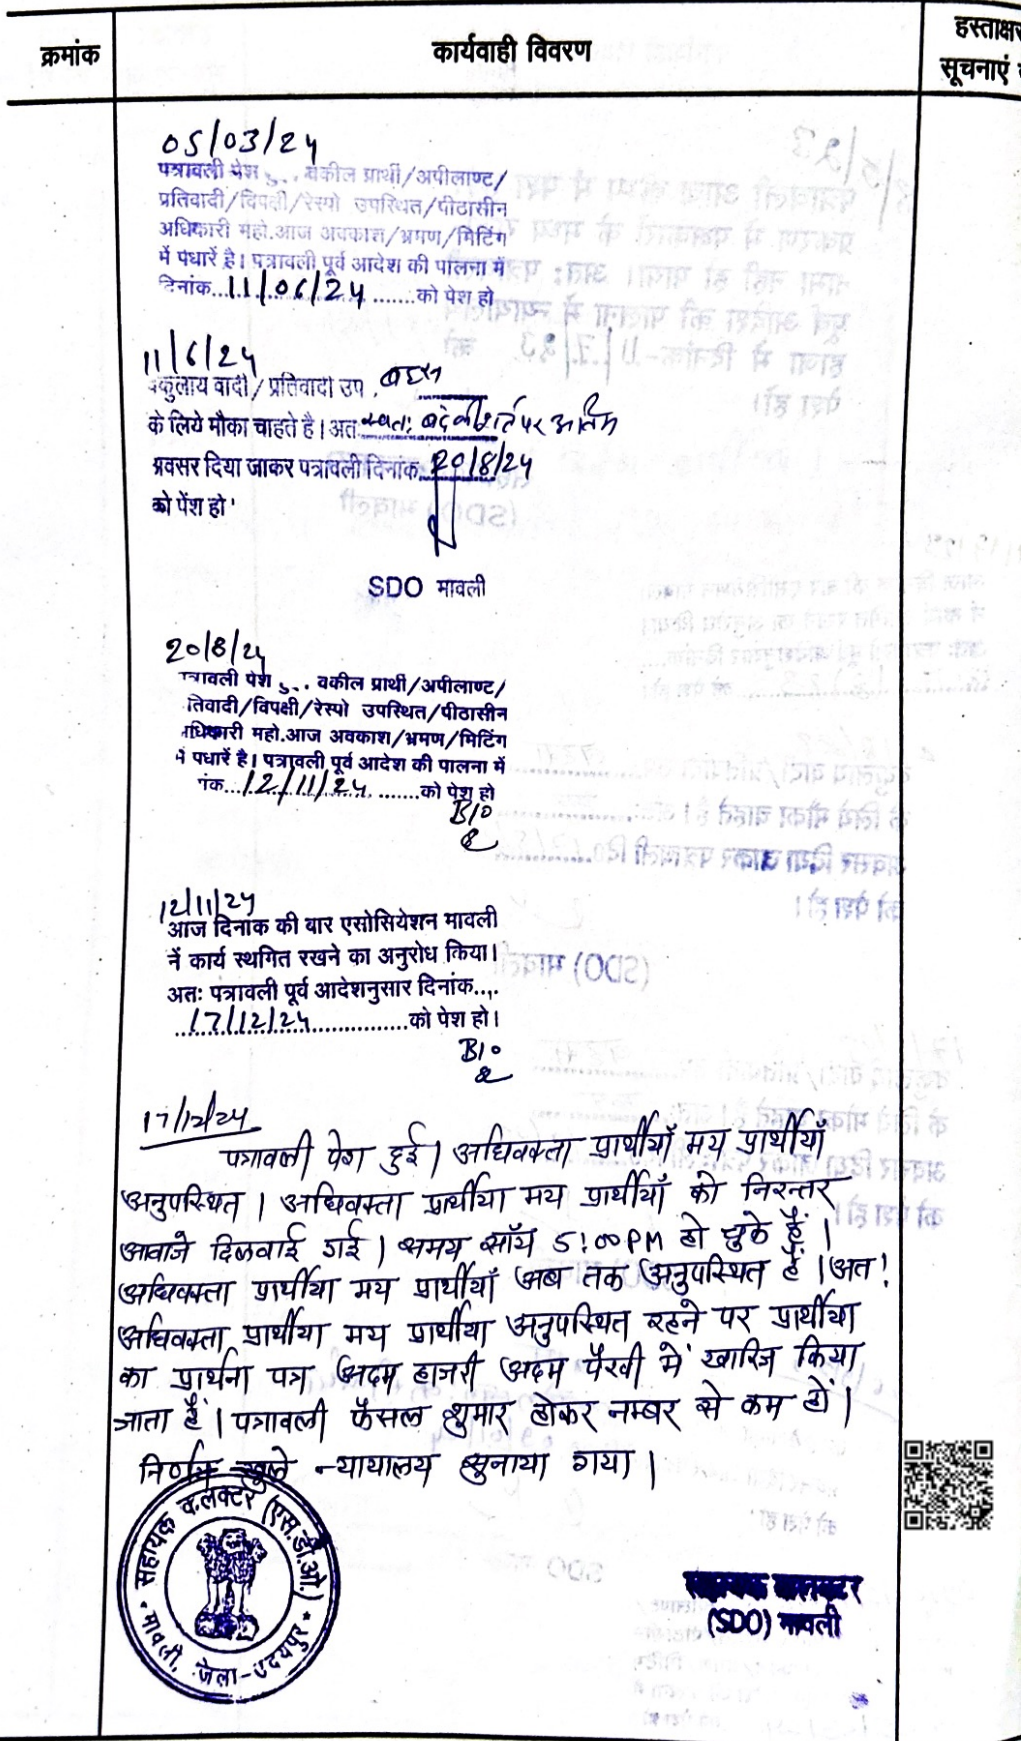 क्रमांक
कार्यवाही विवरण
हस्ताक्षर
सूचनाएं
05/03/24
पत्रावली पेश वकील प्रार्थी/अपीलाण्ट/
प्रतिवादी/विपक्षी/रेस्पो उपस्थित/पीठासीन
अधिकारी महो.आज अवकाश/भ्रमण/मिटिंग
में पधारें है। पत्रावली पूर्व आदेश की पालना में
दिनांक...11/06/24.......को पेश हो
11/6/24
वकुलाय वादी/प्रतिवादी उप. बहस
के लिये मौका चाहते है। अत पर अंतिम
अवसर दिया जाकर पत्रावली दिनांक 20/8/24
को पेंश हो
SDO मावली
20/8/24
त्रावली पेश वकील प्रार्थी/अपीलाण्ट/
तिवादी/विपक्षी/रेस्पो उपस्थित/पीठासीन
धिकारी महो.आज अवकाश/भ्रमण/मिटिंग
में पधारें है। पत्रावली पूर्व आदेश की पालना में
नांक...12/11/24.......को पेश हो
B/o
12/11/24
आज दिनाक की बार एसोसियेशन मावली
नें कार्य स्थगित रखने का अनुरोध किया।
अतः पत्रावली पूर्व आदेशनुसार दिनांक....
17/12/24..............को पेश हो।
B/o
17/12/24
पत्रावली पेश हुई। अधिवक्ता प्रार्थीयाँ मय प्रार्थीयाँ
अनुपस्थित। अधिवक्ता प्रार्थीया मय प्रार्थीयाँ को निरन्तर
आवाजे दिलवाई गई। समय साँय 5:00PM हो चुके हैं।
अधिवक्ता प्रार्थीया मय प्रार्थीयाँ अब तक अनुपस्थित हैं। अत:
अधिवक्ता प्रार्थीया मय प्रार्थीया अनुपस्थित रहने पर प्रार्थीया
का प्रार्थना पत्र अदम हाजरी अदम पैरवी में खारिज किया
जाता हैं। पत्रावली फैसल शुमार होकर नम्बर से कम हो।
निर्णय खुले न्यायालय सुनाया गया।
सहायक कलक्टर (एस.डी.ओ.)
मावली, जिला-उदयपुर
सहायक कलक्टर
(SDO) मावली